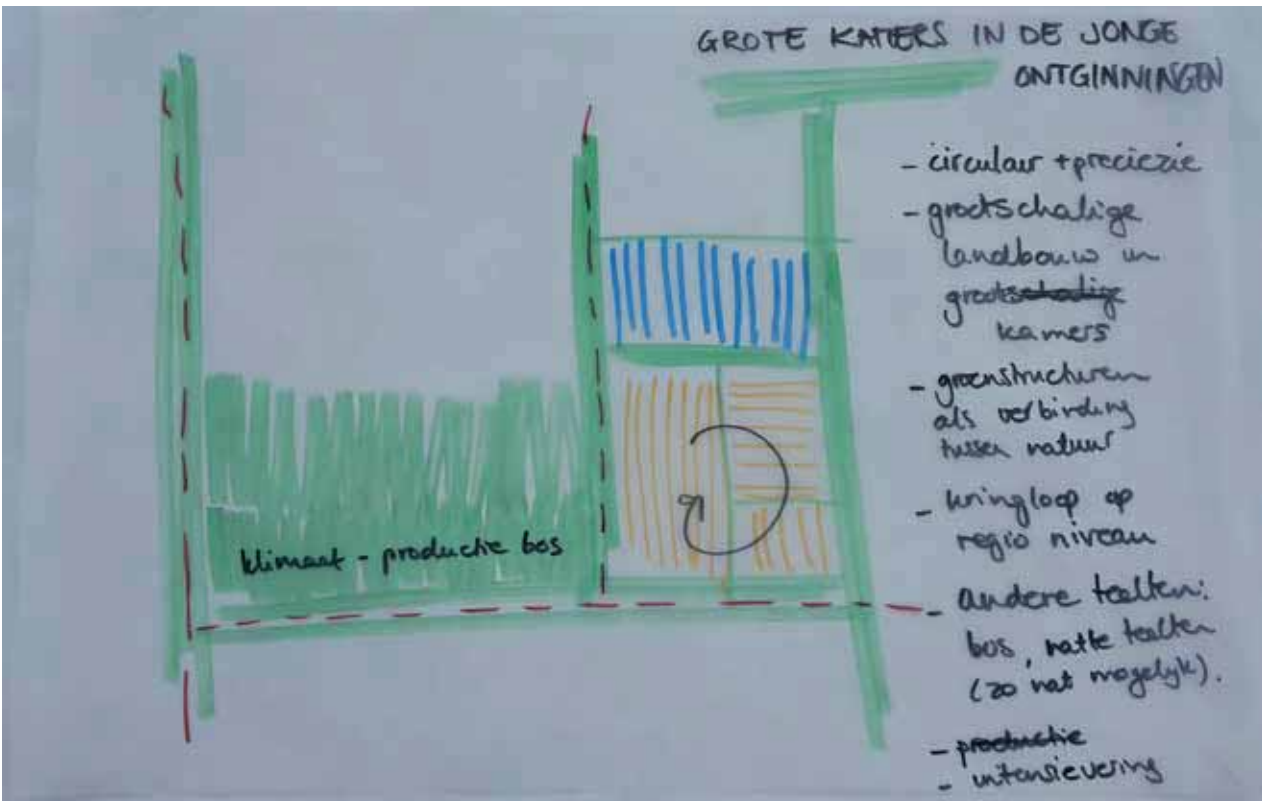 GROTE KAMERS IN DE JONGE
ONTGINNINGEN
- circulair + preciezie
- grootschalige
landbouw in
grootschalige
kamers
- groenstructuren
als verbinding
tussen natuur
- kringloop op
regio niveau
- andere teelten:
bos, natte teelten
(zo nat mogelijk).
- productie
- intensievering
klimaat - productie bos